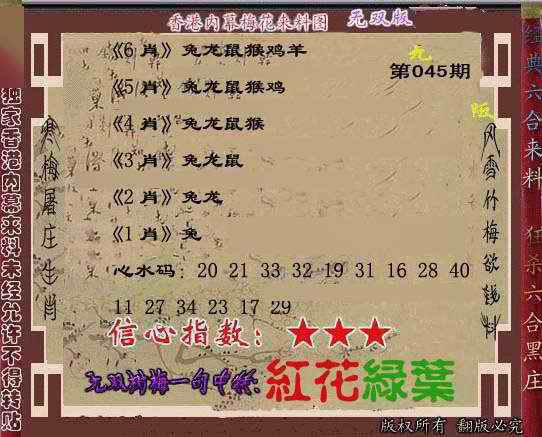 香港内幕梅花来料图 无双版
《6 肖》兔龙鼠猴鸡羊
第045期
《5 肖》兔龙鼠猴鸡
《4 肖》兔龙鼠猴
《3 肖》兔龙鼠
《2 肖》兔龙
《1 肖》兔
心水码: 20 21 33 32 19 31 16 28 40
11 27 34 23 17 29
信心指数: ★★★
一句中特:紅花綠葉
版权所有 翻版必究
独家香港内幕来料未经允许不得转贴
寒梅屠庄生肖
风雪竹梅欲钱料
经典六合来料
狂杀六合黑庄